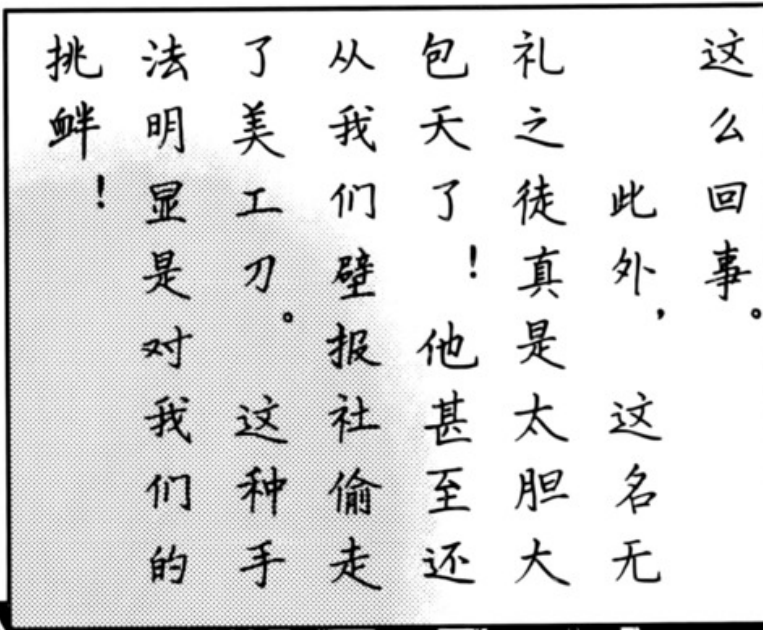 这么回事。
此外，这名无
礼之徒真是太胆大
包天了！他甚至还
从我们壁报社偷走
了美工刀。这种手
法明显是对我们的
挑衅！